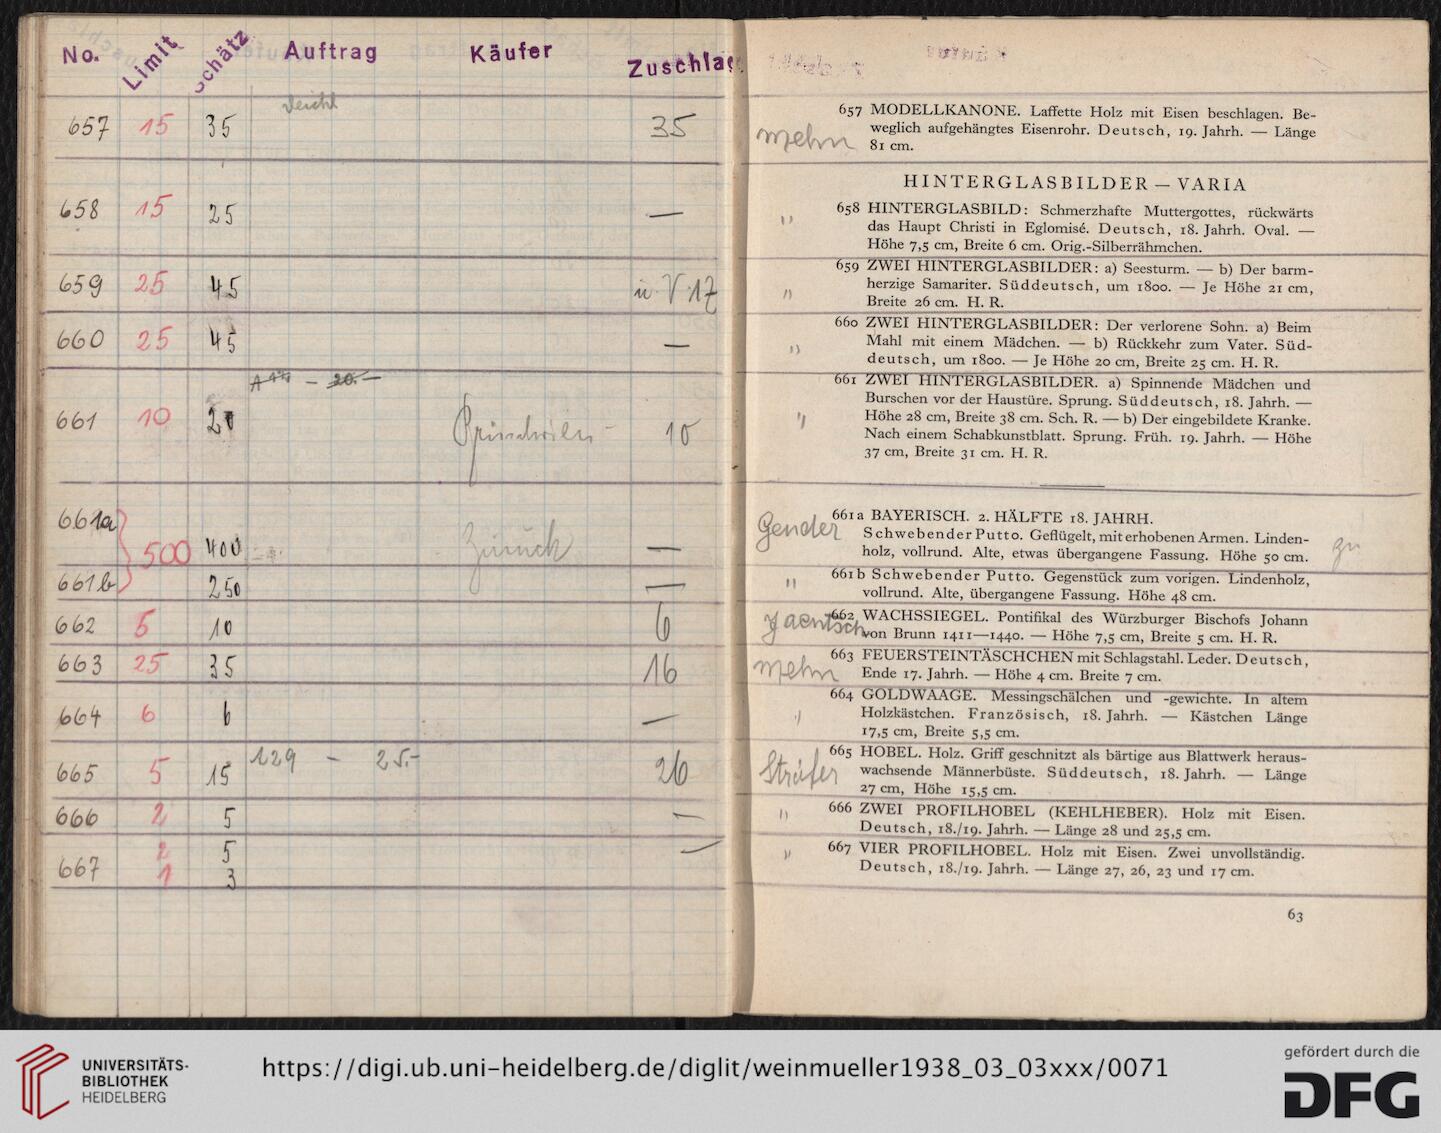 No. Limit Schätz Auftrag Käufer Zuschlag
657 15 35 35
658 15 25 —
659 25 45 ü. V. 17
660 25 45 —
— 20.—
661 10 20 10
661a 500 400 Zurück —
661b 250 —
662 5 10 6
663 25 35 16
664 6 6 —
665 5 15 129 — 25.- 26
666 2 5 —
667 2 5 —
1 3
657 MODELLKANONE. Laffette Holz mit Eisen beschlagen. Be-
weglich aufgehängtes Eisenrohr. Deutsch, 19. Jahrh. — Länge
81 cm.
HINTERGLASBILDER — VARIA
658 HINTERGLASBILD: Schmerzhafte Muttergottes, rückwärts
das Haupt Christi in Eglomisé. Deutsch, 18. Jahrh. Oval. —
Höhe 7,5 cm, Breite 6 cm. Orig.-Silberrähmchen.
659 ZWEI HINTERGLASBILDER: a) Seesturm. — b) Der barm-
herzige Samariter. Süddeutsch, um 1800. — Je Höhe 21 cm,
Breite 26 cm. H. R.
660 ZWEI HINTERGLASBILDER: Der verlorene Sohn. a) Beim
Mahl mit einem Mädchen. — b) Rückkehr zum Vater. Süd-
deutsch, um 1800. — Je Höhe 20 cm, Breite 25 cm. H. R.
661 ZWEI HINTERGLASBILDER. a) Spinnende Mädchen und
Burschen vor der Haustüre. Sprung. Süddeutsch, 18. Jahrh. —
Höhe 28 cm, Breite 38 cm. Sch. R. — b) Der eingebildete Kranke.
Nach einem Schabkunstblatt. Sprung. Früh. 19. Jahrh. — Höhe
37 cm, Breite 31 cm. H. R.
661a BAYERISCH. 2. HÄLFTE 18. JAHRH.
Gender Schwebender Putto. Geflügelt, mit erhobenen Armen. Linden- zu
holz, vollrund. Alte, etwas übergangene Fassung. Höhe 50 cm.
" 661b Schwebender Putto. Gegenstück zum vorigen. Lindenholz,
vollrund. Alte, übergangene Fassung. Höhe 48 cm.
Jaentsch 662 WACHSSIEGEL. Pontifikal des Würzburger Bischofs Johann
von Brunn 1411—1440. — Höhe 7,5 cm, Breite 5 cm. H. R.
663 FEUERSTEINTÄSCHCHEN mit Schlagstahl. Leder. Deutsch,
Ende 17. Jahrh. — Höhe 4 cm. Breite 7 cm.
664 GOLDWAAGE. Messingschälchen und -gewichte. In altem
Holzkästchen. Französisch, 18. Jahrh. — Kästchen Länge
17,5 cm, Breite 5,5 cm.
665 HOBEL. Holz. Griff geschnitzt als bärtige aus Blattwerk heraus-
Sträfer wachsende Männerbüste. Süddeutsch, 18. Jahrh. — Länge
27 cm, Höhe 15,5 cm.
" 666 ZWEI PROFILHOBEL (KEHLHEBER). Holz mit Eisen.
Deutsch, 18./19. Jahrh. — Länge 28 und 25,5 cm.
" 667 VIER PROFILHOBEL. Holz mit Eisen. Zwei unvollständig.
Deutsch, 18./19. Jahrh. — Länge 27, 26, 23 und 17 cm.
63
UNIVERSITÄTS-
BIBLIOTHEK
HEIDELBERG
https://digi.ub.uni-heidelberg.de/diglit/weinmueller1938_03_03xxx/0071
gefördert durch die
DFG